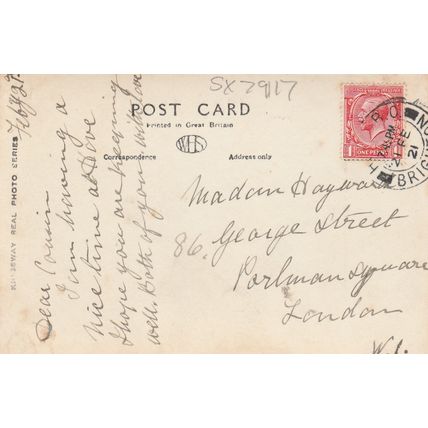 SX 7917
POST CARD
Printed in Great Britain
Correspondence
Address only
KINGSWAY REAL PHOTO SERIES
Dear Cousin
I am having a
nice time at Hove
I hope you are keeping
well. Both of you with love
Madam Hayward
86. George Street
Portman Square
London
W.1.
ONE PENNY
HOVE
BRIGHTON
FE
21